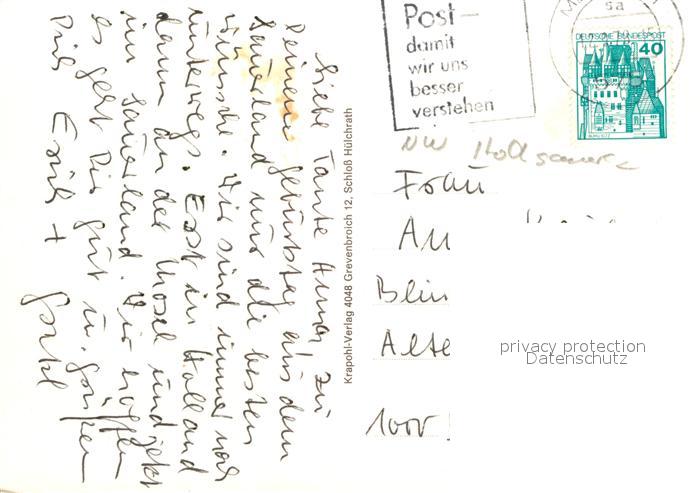 Liebe Tante Anna, zu
Deinem Geburtstag aus dem
Sauerland nur die besten
Wünsche. Wir sind immer noch
unterwegs. Erst in Holland
dann an der Mosel und jetzt
im Sauerland. Wir hoffen
es geht Dir gut u. grüßen
Dich Erich +
Krapohl-Verlag 4048 Grevenbroich 12, Schloß Hülchrath
Post-
damit
wir uns
besser
verstehen
sa
DEUTSCHE BUNDESPOST
40
BURG ELTZ
NW
Frau
Alte
privacy protection
Datenschutz